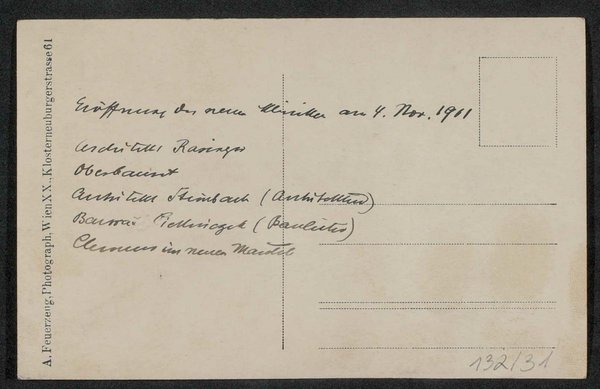 A. Feuerzeug, Photograph, Wien XX., Klosterneuburgerstrasse 61
Eröffnung der neuen Kliniken am 4. Nov. 1911
Architekt
Oberbaurat
Architekt Steinbach (Architekten)
Baurat (Bauleiter)
Clemens im neuen Mantel
132/31